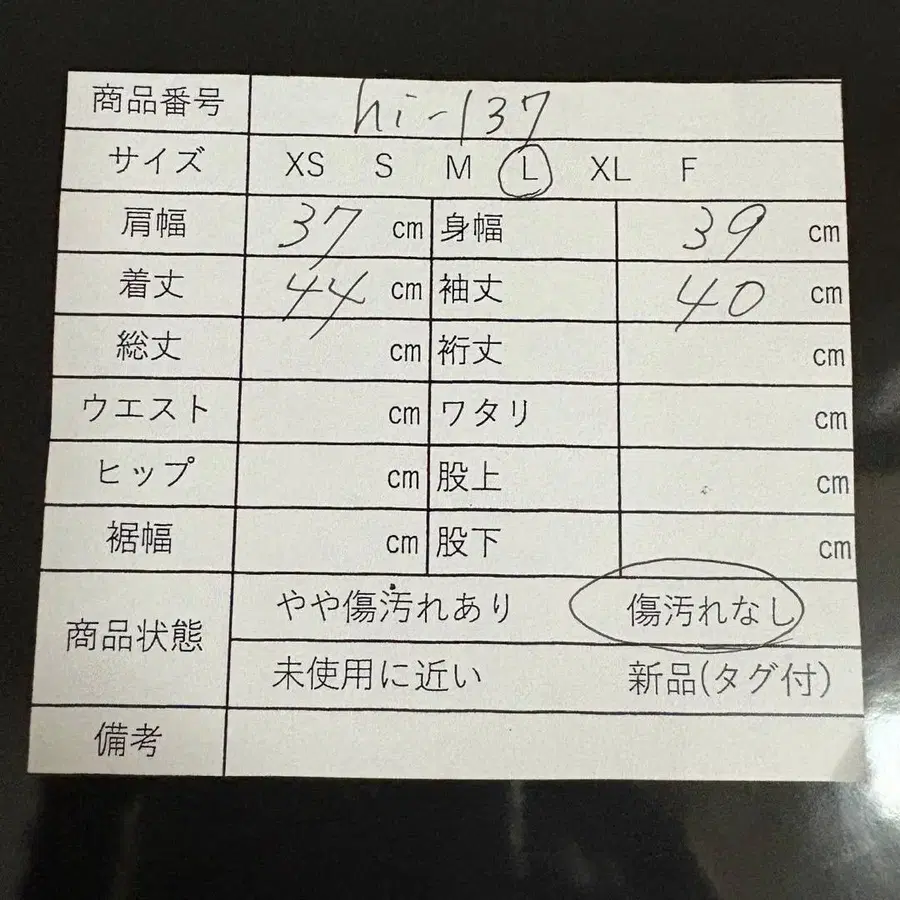 商品番号 hi-137
サイズ XS S M L XL F
肩幅 37 cm 身幅 39 cm
着丈 44 cm 袖丈 40 cm
総丈 cm 裄丈 cm
ウエスト cm ワタリ cm
ヒップ cm 股上 cm
裾幅 cm 股下 cm
商品状態 やや傷汚れあり 傷汚れなし
未使用に近い 新品(タグ付)
備考